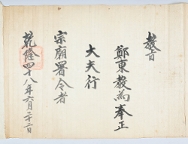 教旨
鄭東教為奉正
大夫行
宗廟署令者
乾隆四十八年六月二十二日